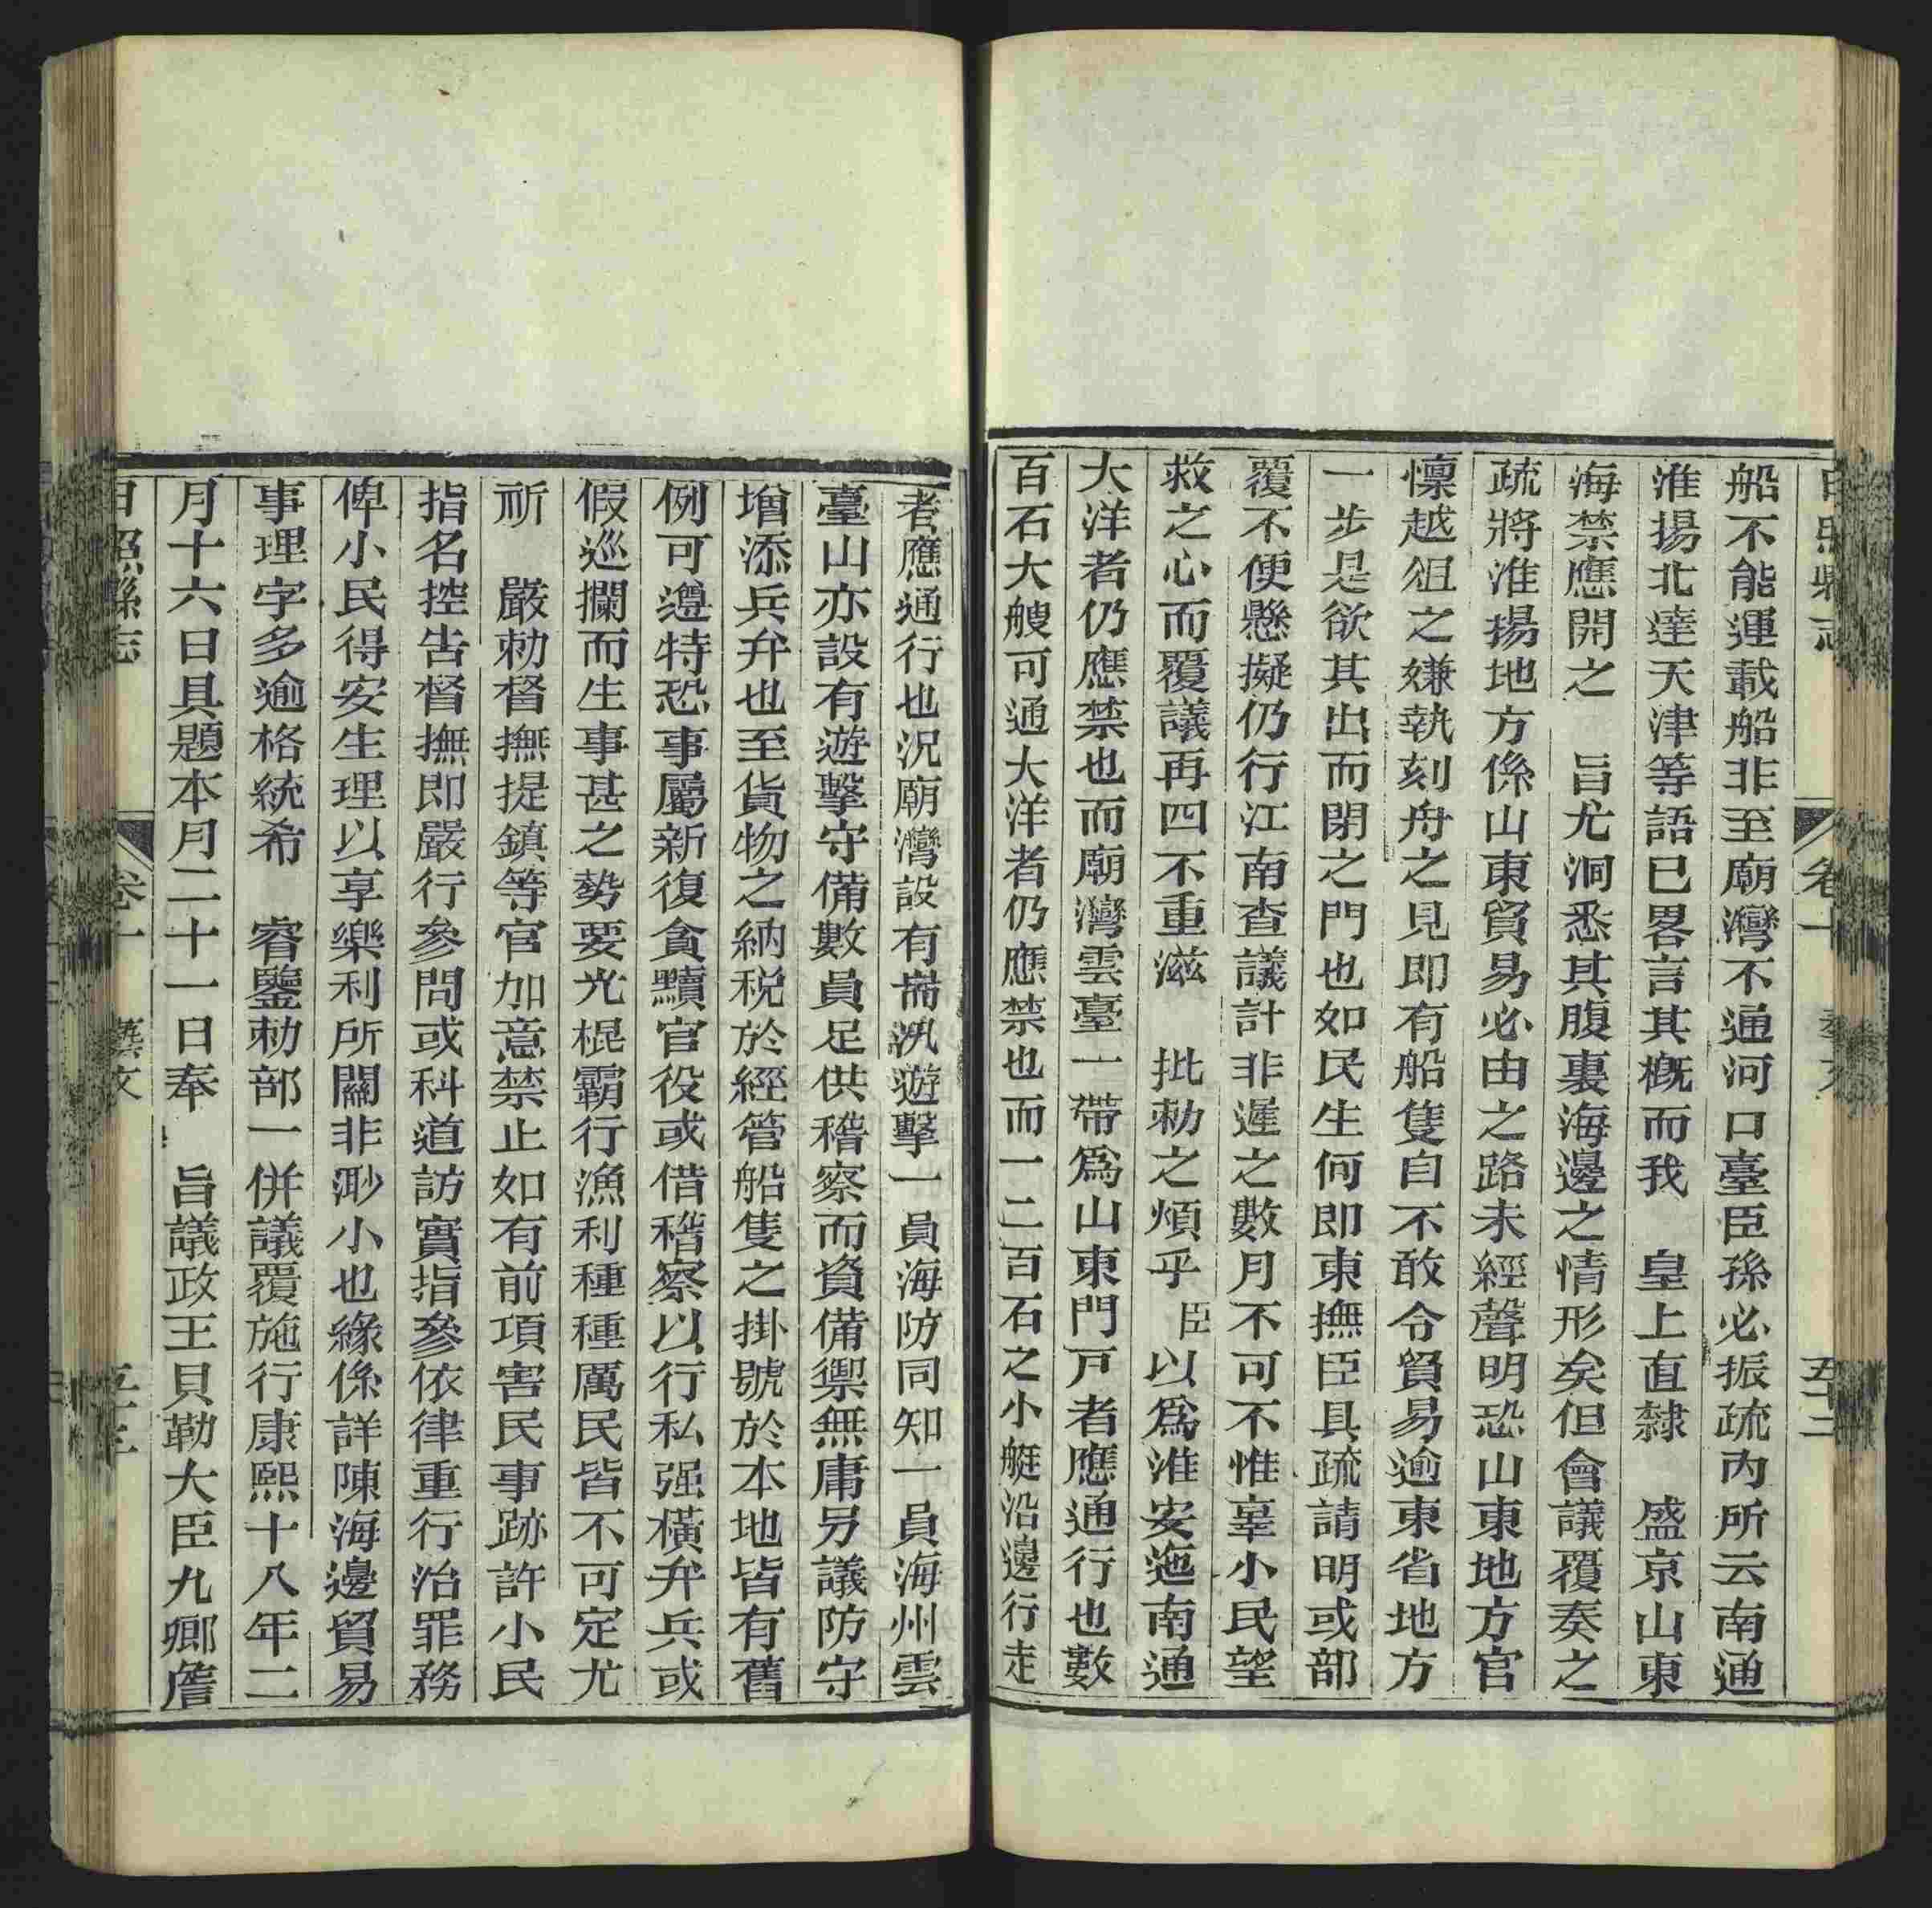 日照縣志 卷十 藝文 五十二
船不能運載船非至廟灣不通河口臺臣孫必振疏內所云南通
淮揚北達天津等語已畧言其概而我 皇上直隸 盛京山東
海禁應開之 旨尤洞悉其腹裏海邊之情形矣但會議覆奏之
疏將淮揚地方係山東貿易必由之路未經聲明恐山東地方官
懍越俎之嫌執刻舟之見即有船隻自不敢令貿易逾東省地方
一步是欲其出而閉之門也如民生何即東撫臣具疏請明或部
覆不便懸擬仍行江南查議計非遲之數月不可不惟辜小民望
救之心而覆議再四不重滋 批勅之煩乎臣以爲淮安迤南通
大洋者仍應禁也而廟灣雲臺一帶爲山東門戸者應通行也數
百石大艘可通大洋者仍應禁也而一二百石之小艇沿邊行走
者應通行也況廟灣設有耑汛遊擊一員海防同知一員海州雲
臺山亦設有遊擊守備數員足供稽察而資備禦無庸另議防守
增添兵弁也至貨物之納税於經管船隻之掛號於本地皆有舊
例可遵特恐事屬新復貪黷官役或借稽察以行私强橫弁兵或
假巡攔而生事甚之勢要光棍霸行漁利種種厲民皆不可定尤
祈 嚴勅督撫提鎮等官加意禁止如有前項害民事跡許小民
指名控告督撫即嚴行參問或科道訪實指參依律重行治罪務
俾小民得安生理以享樂利所關非渺小也緣係詳陳海邊貿易
事理字多逾格統希 睿鑒勅部一併議覆施行康熙十八年二
月十六日具題本月二十一日奉 旨議政王貝勒大臣九卿詹
日照縣志 卷十 藝文 五十三